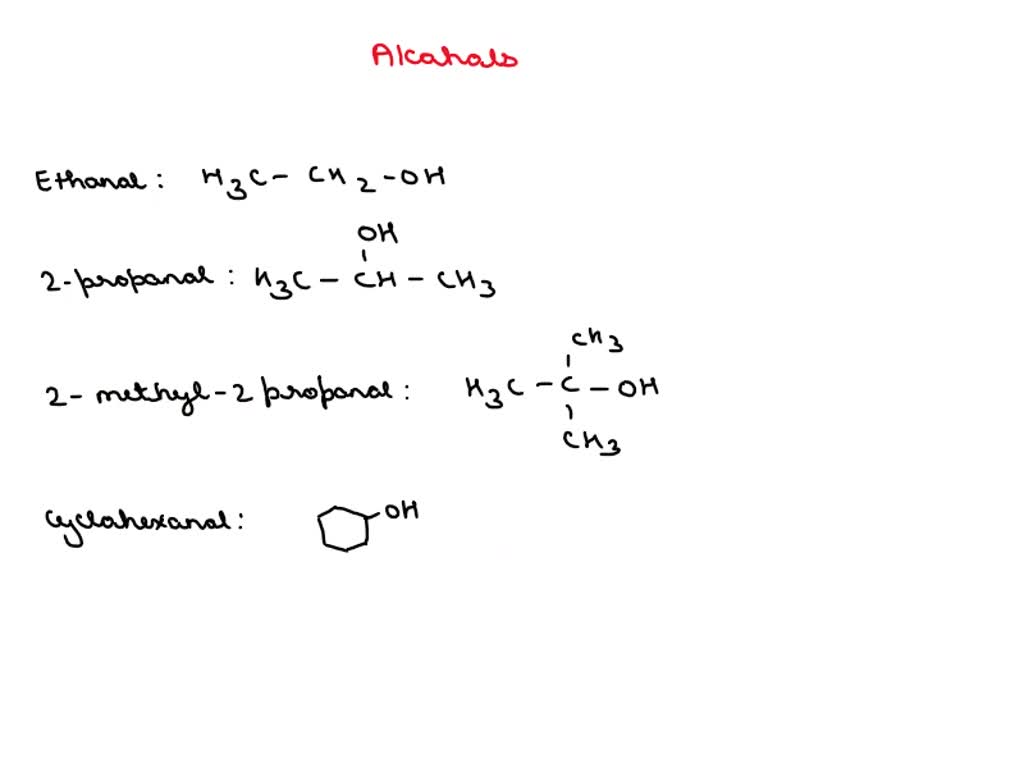 Alcahals
Ethanal: H3C- CH2-OH
OH
2-propanal: H3C - CH - CH3
CH3
2- methyl-2 propanal: H3C - C - OH
CH3
Cyclahexanal: OH